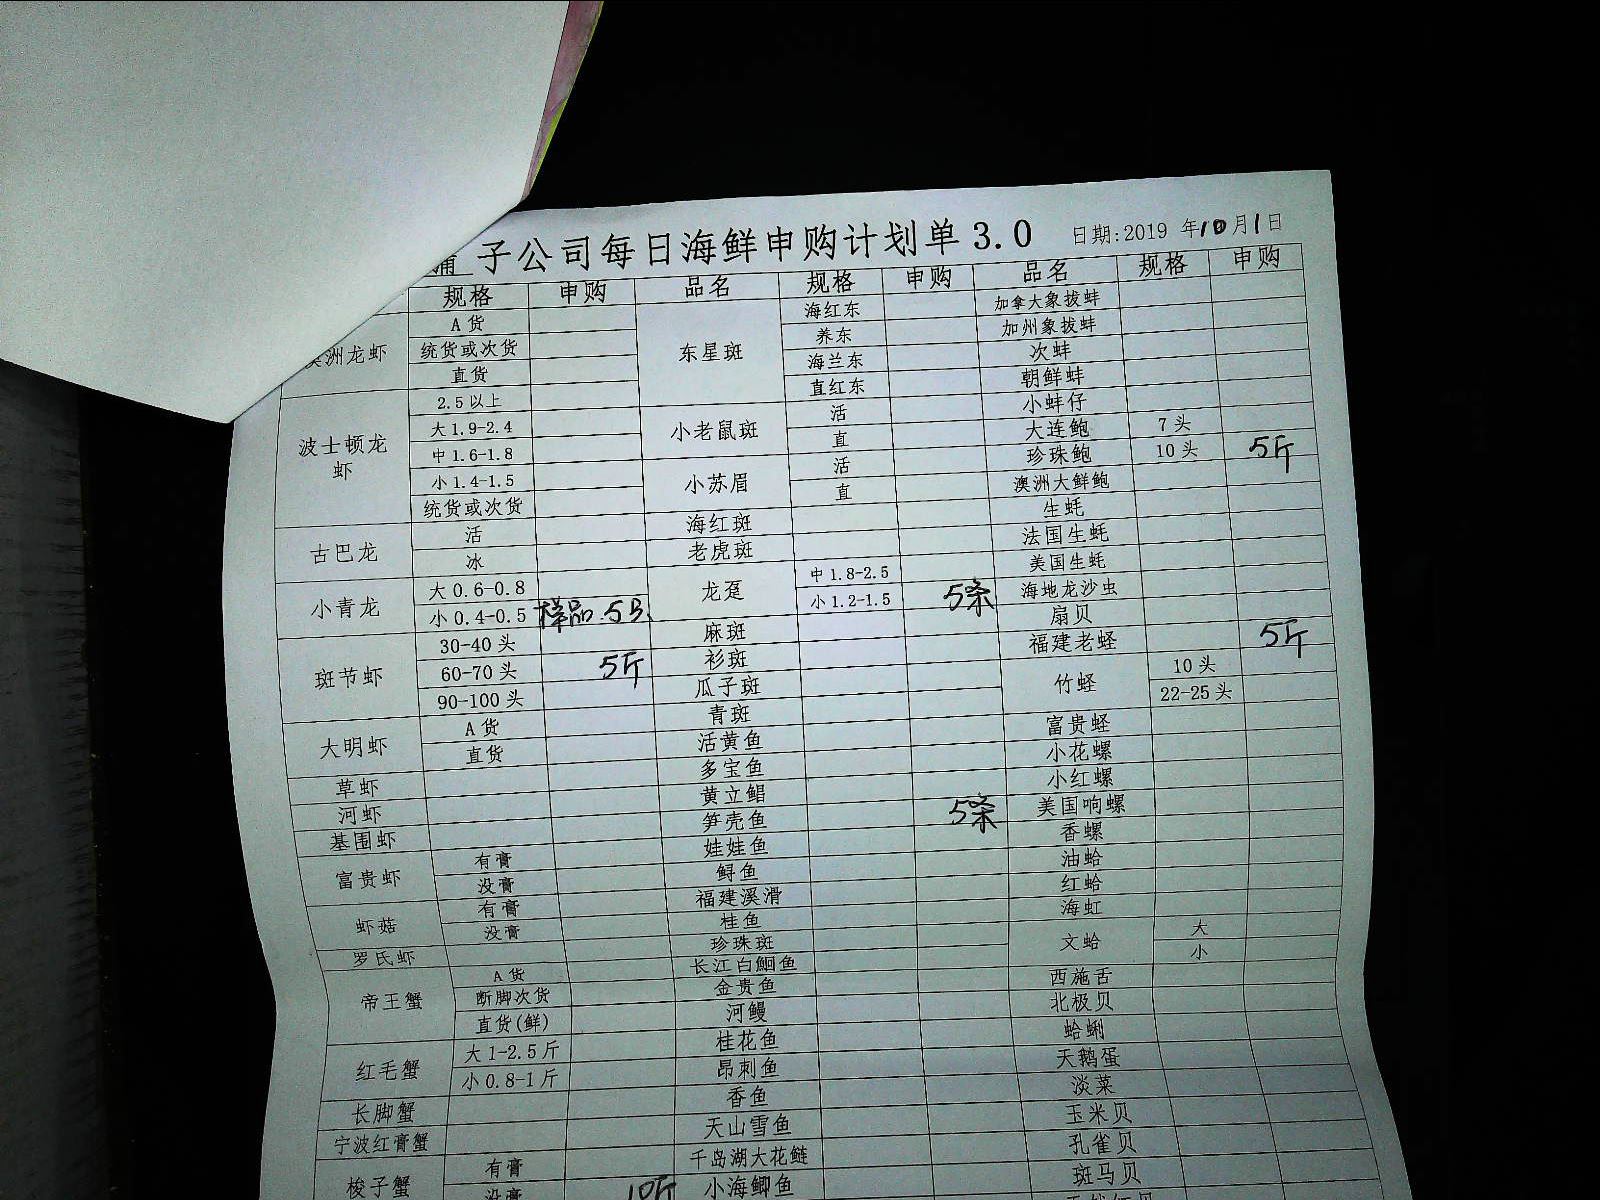 子公司每日海鲜申购计划单3.0 日期:2019 年10月1日
规格 申购 品名 规格 申购 品名 规格 申购
A货 海红东 加拿大象拔蚌
洲龙虾 统货或次货 东星斑 养东 加州象拔蚌
直货 海兰东 次蚌
2.5以上 直红东 朝鲜蚌
波士顿龙虾 大1.9-2.4 小老鼠斑 活 小蚌仔
中1.6-1.8 直 大连鲍 7头
小1.4-1.5 小苏眉 活 珍珠鲍 10头 5斤
统货或次货 直 澳洲大鲜鲍
古巴龙 活 海红斑 生蚝
冰 老虎斑 法国生蚝
小青龙 大0.6-0.8 龙趸 中1.8-2.5 美国生蚝
小0.4-0.5 样品.5只 小1.2-1.5 5条 海地龙沙虫
斑节虾 30-40头 麻斑 扇贝
60-70头 5斤 衫斑 福建老蛏 5斤
90-100头 瓜子斑 竹蛏 10头
大明虾 A货 青斑 22-25头
直货 活黄鱼 富贵蛏
草虾 多宝鱼 小花螺
河虾 黄立鲳 小红螺
基围虾 笋壳鱼 5条 美国响螺
富贵虾 有膏 娃娃鱼 香螺
没膏 鲟鱼 油蛤
虾菇 有膏 福建溪滑 红蛤
没膏 桂鱼 海虹
罗氏虾 珍珠斑 文蛤 大
帝王蟹 A货 长江白鮰鱼 小
断脚次货 金贵鱼 西施舌
直货(鲜) 河鳗 北极贝
红毛蟹 大1-2.5斤 桂花鱼 蛤蜊
小0.8-1斤 昂刺鱼 天鹅蛋
长脚蟹 香鱼 淡菜
宁波红膏蟹 天山雪鱼 玉米贝
梭子蟹 有膏 千岛湖大花鲢 孔雀贝
没膏 10斤 小海鲫鱼 斑马贝